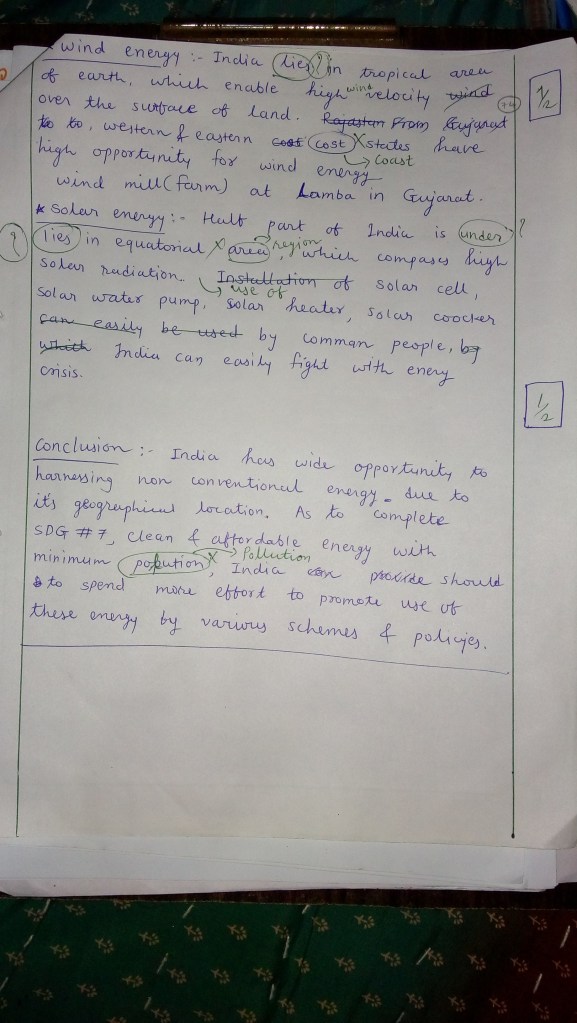 wind energy :- India lies ? in tropical area
of earth, which enable high wind velocity wind
over the surface of land. Rajastan From Gujarat
to to, western & eastern cost cost X states have
high opportunity for wind energy → coast
wind mill (farm) at Lamba in Gujarat.
* Solar energy :- Half part of India is under ?
? lies in equatorial X area → region, which compases high
solar radiation. Installation of solar cell,
use of
solar water pump, solar heater, solar coocker
can easily be used by comman people, by
which India can easily fight with enery
crisis.
1/2
1/2
Conclusion :- India has wide opportunity to
harnessing non conventional energy due to
it's geographical location. As to complete
SDG #7, clean & affordable energy with
minimum popution X → Pollution, India can provide should
to spend more effort to promote use of
these energy by various schemes & policies.